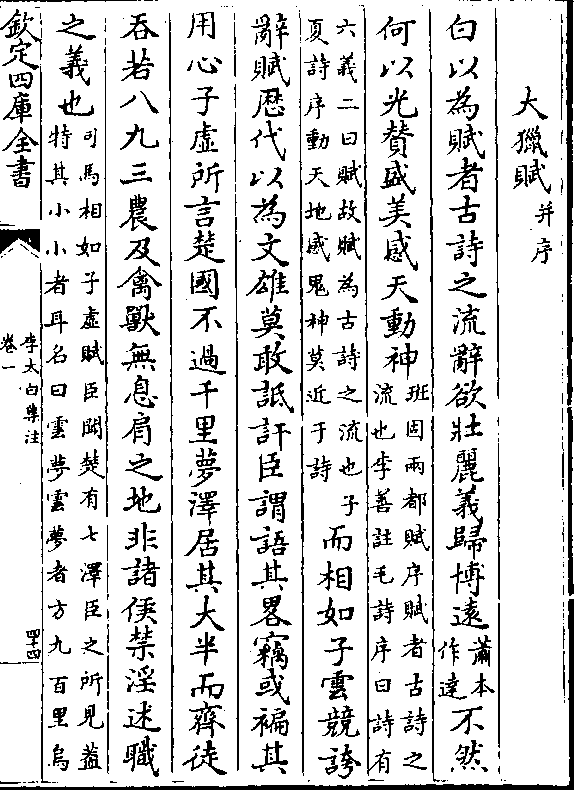 大獵賦 并序
白以為賦者古詩之流辭欲壯麗義歸博遠 蕭本作達 不然
何以光賛盛美感天動神 班固兩都賦序賦者古詩之流也李善註毛詩序曰詩有
六義二曰賦故賦為古詩之流也子夏詩序動天地感鬼神莫近于詩 而相如子雲競誇
辭賦歴代以為文雄莫敢詆訐臣謂語其畧竊或褊其
用心子虛所言楚國不過千里夢澤居其大半而齊徒
吞若八九三農及禽獸無息肩之地非諸侯禁淫述職
之義也 司馬相如子虛賦臣聞楚有七澤臣之所見盖特其小小者耳名曰雲夢雲夢者方九百里烏
欽定四庫全書 李太白集注 卷一 四十四